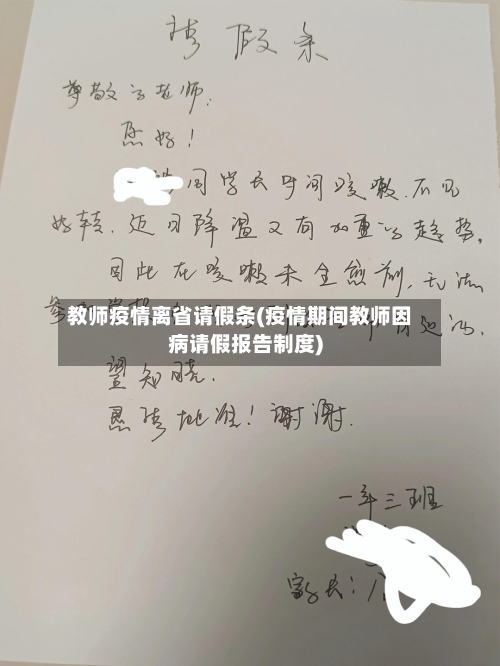 请假条
尊敬的老师:
您好!
同学长时间咳嗽.不见
好转.近日降温又有加重的趋势。
因此在咳嗽未全愈前,无法
教师疫情离省请假条(疫情期间教师因
病请假报告制度)
望知晓.
恳请批准!谢谢.
一年三班
家长: